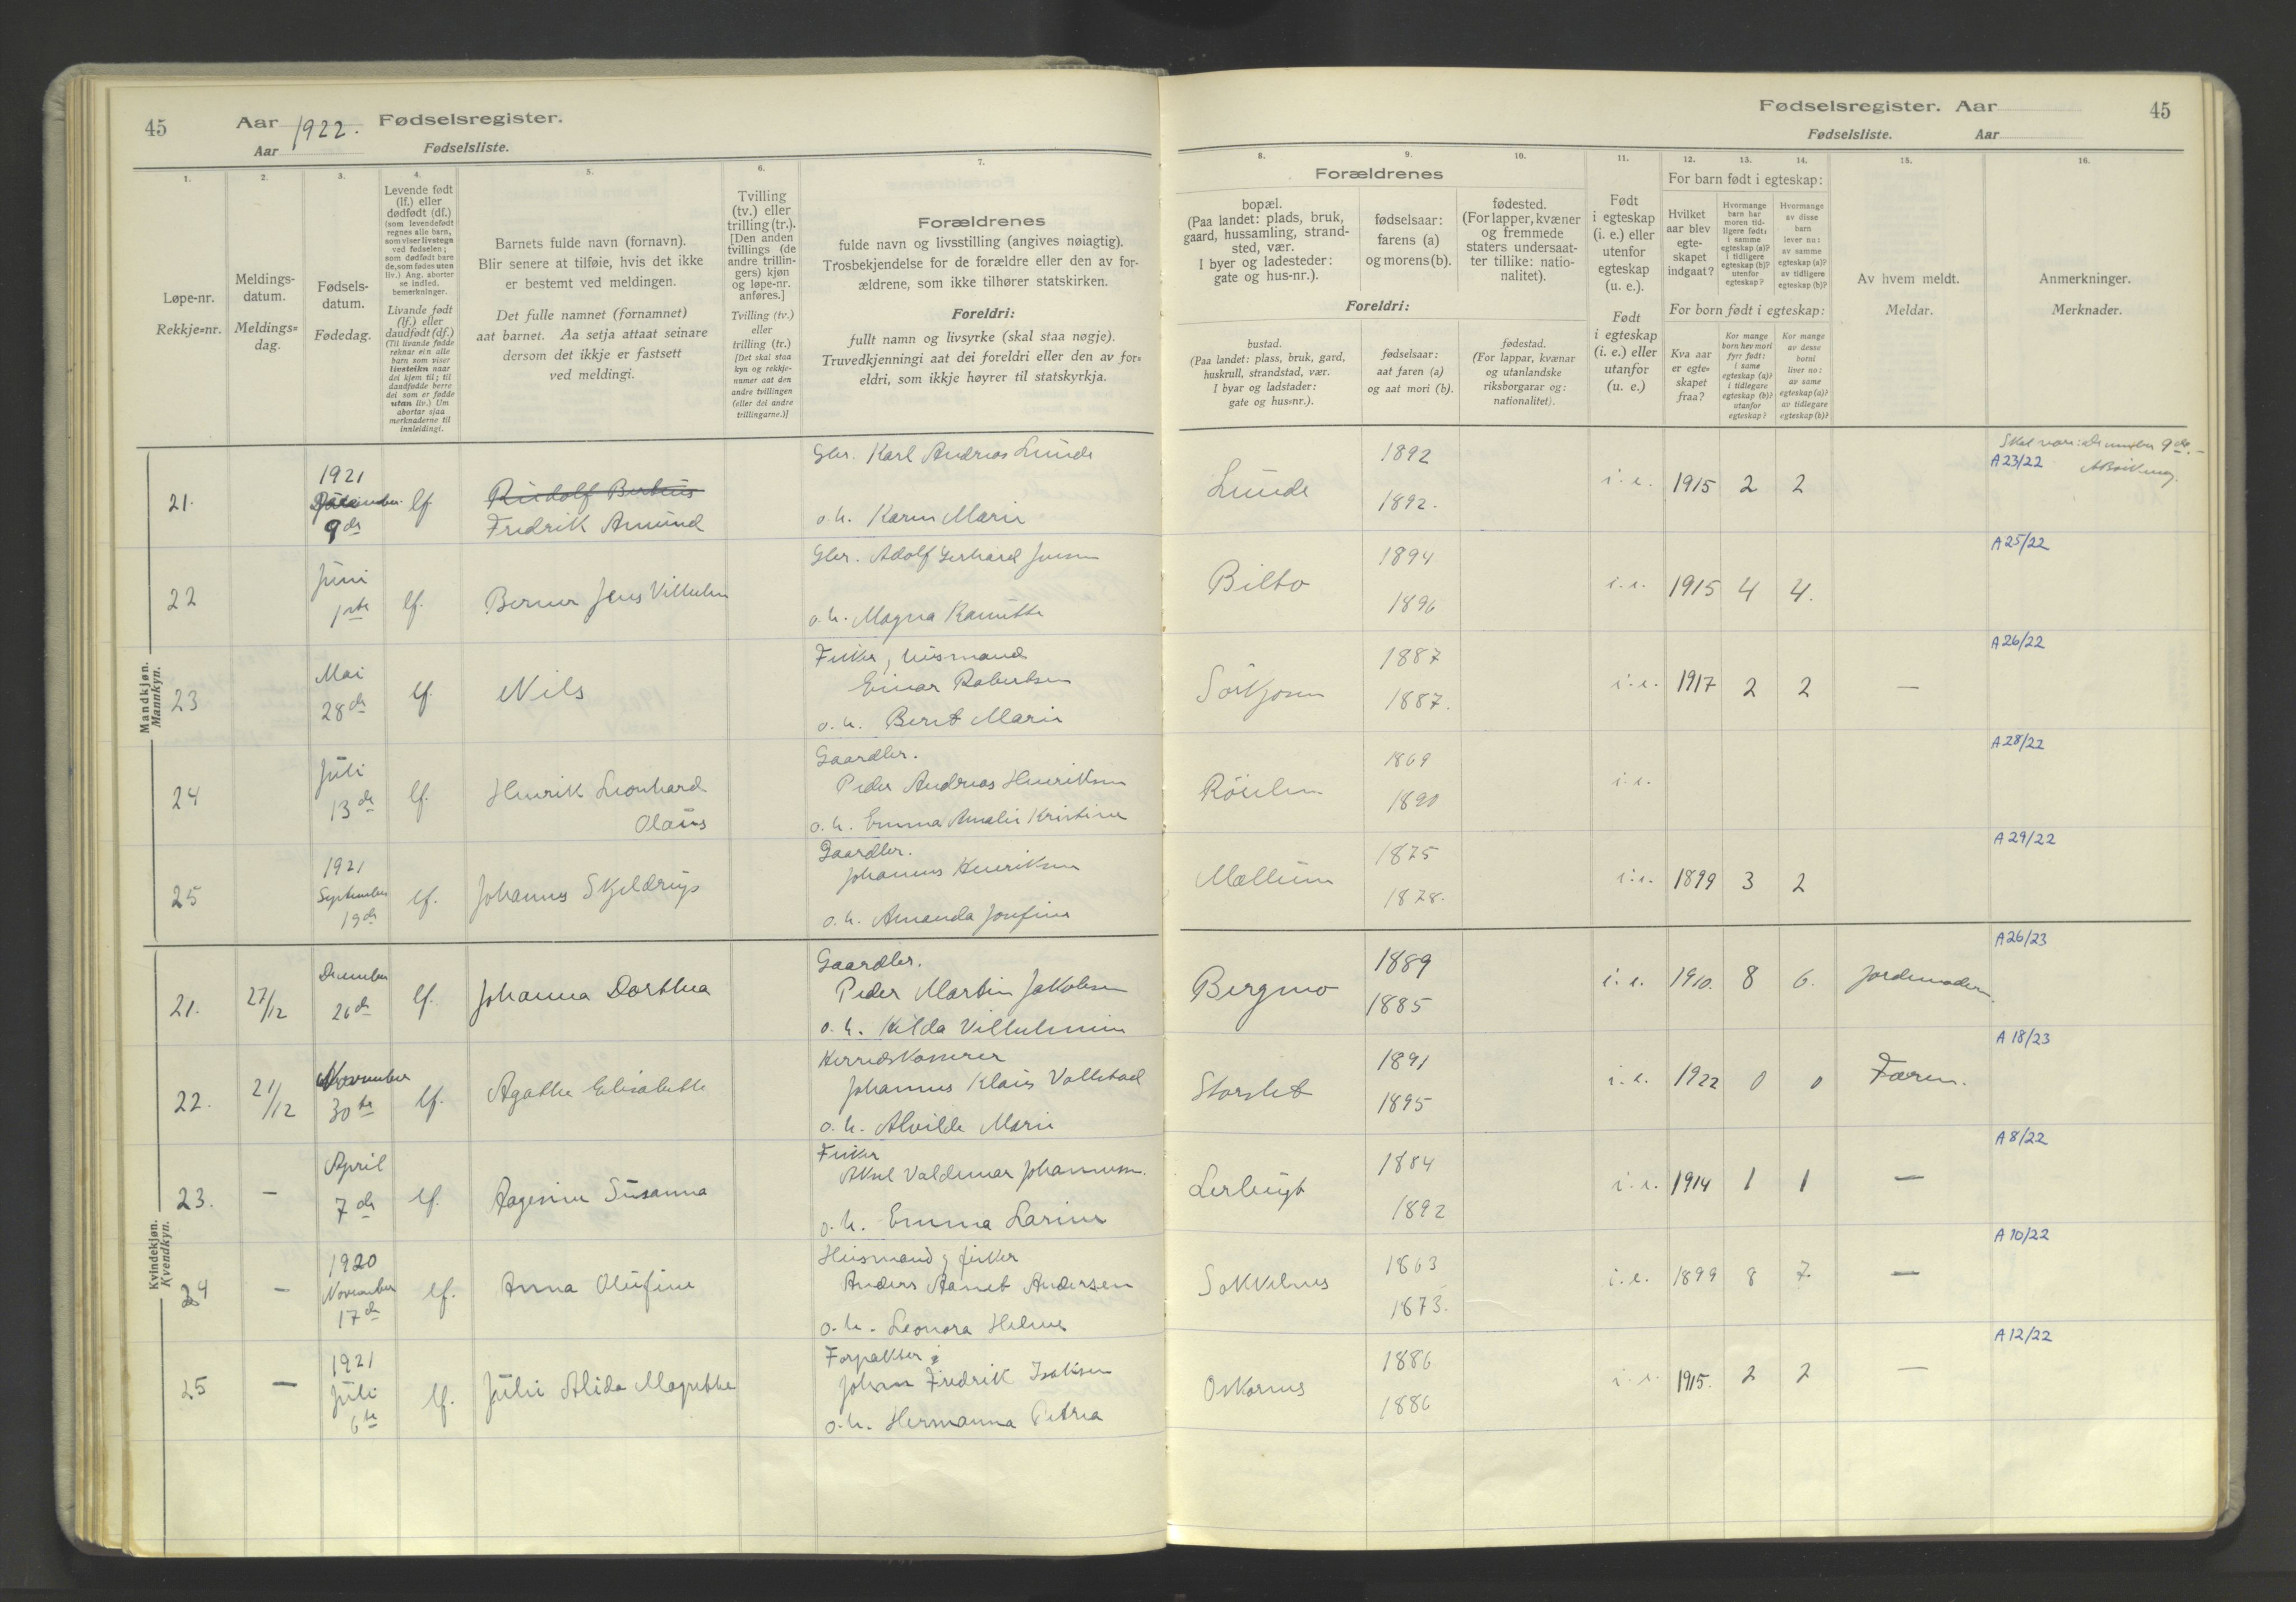 45
Aar 1922. Fødselsregister.
Aar Fødselsliste.
1. 2. 3. 4. 5. 6. 7.
Løpe-nr.
Rekkje-nr.
Meldings-
datum.
Meldings-
dag.
Fødsels-
datum.
Fødedag.
Levende født
(lf.) eller
dødfødt (df.)
(som levendefødt
regnes alle barn,
som viser livstegn
ved fødselen;
som dødfødt bare
de, som fødes uten
liv.) Ang. aborter
se indled.
bemerkninger.
Livande født
(lf.) eller
daudfødt (df.)
(Til livande fødde
reknar ein alle
barn som viser
livsteikn naar
dei kjem til; til
daudfødde berre
dei som er fødde
utan liv.) Um
abortar sjaa
merknaderne til
innleidingi.
Barnets fulde navn (fornavn).
Blir senere at tilføie, hvis det ikke
er bestemt ved meldingen.
Det fulle namnet (fornamnet)
aat barnet. Aa setja attaat seinare
dersom det ikkje er fastsett
ved meldingi.
Tvilling
(tv.) eller
trilling (tr.).
[Den anden
tvillings (de
andre trillin-
gers) kjøn
og løpe-nr.
anføres.]
Tvilling (tv.)
eller
trilling (tr.)
[Det skal staa
kyn og rekkje-
numer aat den
andre tvillingen
(eller dei andre
trillingarne.)]
Forældrenes
fulde navn og livsstilling (angives nøiagtig).
Trosbekjendelse for de forældre eller den av for-
ældrene, som ikke tilhører statskirken.
Foreldri:
fullt namn og livsyrke (skal staa nøgje).
Truvedkjenningi aat dei foreldri eller den av for-
eldri, som ikkje høyrer til statskyrkja.
Mandkjøn.
Mannkyn.
21. 1921
9de lf. Rudolf Berteus
Fredrik Amund
Gbr. Karl Andreas Lunde
o. h. Karen Marie
22 Juni
1ste lf. Berner Jens Villulm
Gbr. Adolf Gerhard Jensen
o. h. Magna Ranitta
23 Mai
28de lf. Nils
Fisker, husmand
Einar Robertsen
o. h. Berit Marie
24 Juli
13de lf. Henrik Leonhard
Olaus
Gaardbr.
Peder Andreas Henriksen
o. h. Emma Amalie Kristine
25 1921
September
19de lf. Johannes Skjeldrup
Gaardbr.
Johannes Henriksen
o. h. Amanda Josefine
Kvindekjøn.
Kvendkyn.
21. 27/12 December
26de lf. Johanna Dorthea
Gaardbr.
Peder Martin Jakobsen
o. h. Hilda Villulmine
22. 21/12 November
30te lf. Agathe Elisabeth
Herredskasserer
Johannes Klaus Vallestad
o. h. Alvilde Marie
23. — April
7de lf. Aagesine Susanna
Fisker
Aksel Valdemar Johannessen.
o. h. Emma Larine
24 — 1920
November
17de lf. Anna Olufine
Husmand, fisker
Anders Aanet Andersen
o. h. Leonora Helene
25 — 1921
Juli
6te lf. Julie Alida Magnethe
Forpakter
Johan Fredrik Isaksen
o. h. Hermanna Petria
Fødselsregister. Aar
45
Fødselsliste. Aar
8. 9. 10. 11. 12. 13. 14. 15. 16.
Forældrenes
bopæl.
(Paa landet: plads, bruk,
gaard, hussamling, strand-
sted, vær.
I byer og ladesteder:
gate og hus-nr.).
fødselsaar:
farens (a)
og morens (b).
fødested.
(For lapper, kvæner
og fremmede
staters undersaat-
ter tillike: natio-
nalitet).
Foreldri:
bustad.
(Paa landet: plass, bruk, gard,
huskrull, strandstad, vær.
I byar og ladstader:
gate og hus-nr.).
fødselsaar:
aat faren (a)
og aat mori (b).
fødestad.
(For lappar, kvænar
og utanlandske
riksborgarar og:
nationalitet).
Født
i egteskap
(i. e.) eller
utenfor
egteskap
(u. e.).
Født
i egteskap
(i. e.) eller
utanfor
(u. e.)
For barn født i egteskap:
Hvilket
aar blev
egte-
skapet
indgaat?
Hvormange
barn har
moren tid-
ligere født:
i samme
egteskap (a)?
i tidligere
egteskap (b)?
utenfor
egteskap?
Hvormange
av disse
barn
lever nu:
av samme
egteskap (a)?
av tidligere
egteskap (b)?
For born født i egteskap:
Kva aar
er egte-
skapet
fraa?
Kor mange
born hev mori
fyrr født:
i same
egteskap (a)?
i tidlegare
egteskap (b)?
utanfor
egteskap?
Kor mange
av desse
borni
liver no:
av same
egteskap (a)?
av tidlegare
egteskap (b)?
Av hvem meldt.
Meldar.
Anmerkninger.
Merknader.
Lunde 1892
1892. i. e. 1915 2 2
Skal være: december 9de.
A 23/22
Bilto 1894
1896 i. e. 1915 4 4.
A 25/22
Sörkjosen 1887
1887. i. e. 1917 2 2 —
A 26/22
Röielen 1869
1890 i. e.
A 28/22
Mællum 1875
1878. i. e. 1899 3 2
A 29/22
Bergmo 1889
1885 i. e. 1910. 8 6. Jordemoderen.
A 26/23
Storslet 1891
1895 i. e. 1922 0 0 Faren.
A 18/23
Lerbugt 1884
1892 i. e. 1914 1 1 —
A 8/22
Sokkelnes 1863
1873. i. e. 1899 8 7. —
A 10/22
Oskarnes 1886
1886 i. e. 1915. 2 2 —
A 12/22